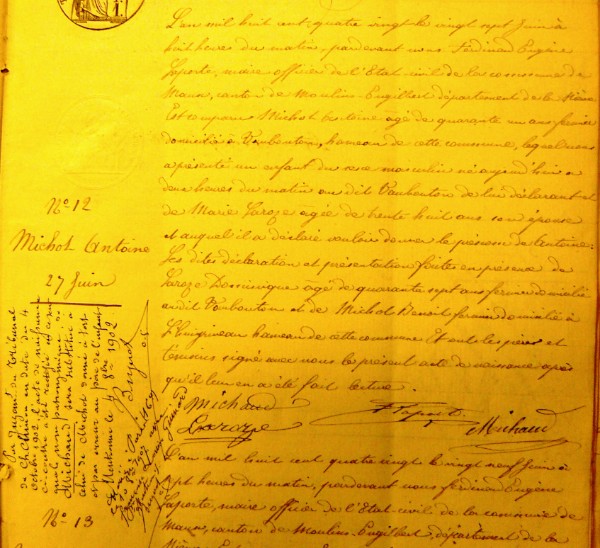 L'an mil huit cent quatre vingt le vingt sept Juin à
huit heures du matin, pardevant nous Ferdinand Eugène
Laporte, maire officier de l'Etat-civil de la commune de
Maux, canton de Moulins-Engilbert département de la Nièvre
Est comparu Michot Antoine agé de quarante un ans fermier
domicilié à Vaubenton, hameau de cette commune, lequel nous
a présenté un enfant du sexe masculin né aujourd'hui à
deux heures du matin au dit Vaubenton de lui déclarant et
de Marie Laroze agée de trente huit ans son épouse
et auquel il a déclaré vouloir donner le prénom de Antoine.
Les dites déclaration et présentation faites en présence de
Laroze Dominique agé de quarante sept ans fermier domicilié
au dit Vaubenton et de Michot Benoit fermier domicilié à
hameau de cette commune. Et ont les père et
témoins signé avec nous le présent acte de naissance après
qu'il leur en a été fait lecture.
Michaud
Laroze
F Laporte
Michaud
N° 12
Michot Antoine
27 Juin
Par Jugement du Tribunal
de Ch. Chinon en date du 4
octobre 1902, l'acte de naissance
ci-contre a été rectifié en ce sens
que le nom patronymique de
Michaud sera substitué à
celui de Michot donné à tort
et par erreur au père de l'enfant
8bre 1902
L'an mil huit cent quatre vingt le vingt neuf Juin à
sept heures du matin, pardevant nous Ferdinand Eugène
Laporte, maire officier de l'Etat-civil de la commune de
Maux, canton de Moulins-Engilbert, département de la
N° 13